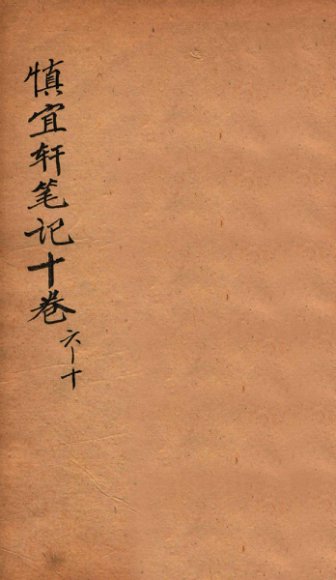 慎宜轩笔记十卷
六—十